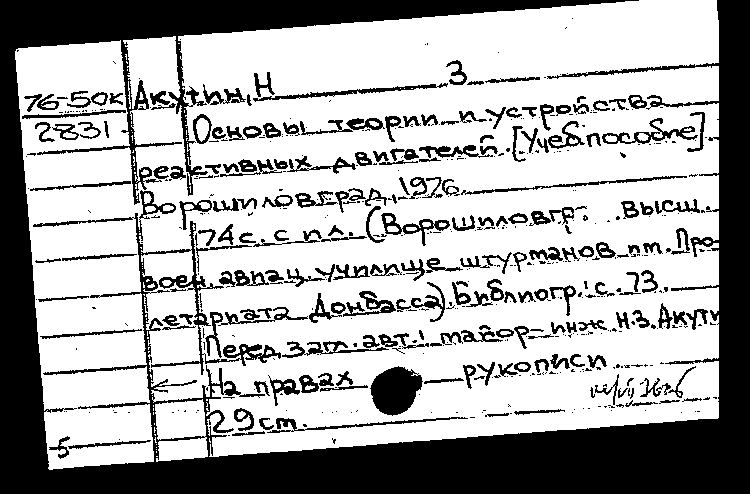 76-50к Акутин, Н 3
2831 Основы теории и устройства
реактивных двигателей. [Учеб. пособие].
Ворошиловград, 1976.
74 с. с ил. (Ворошиловгр. высш.
воен. авиац. училище штурманов им. Про-
летариата Донбасса). Библиогр.: с. 73.
Перед загл. авт.: майор-инж. Н.З. Акутин
На правах рукописи
29 см.
5